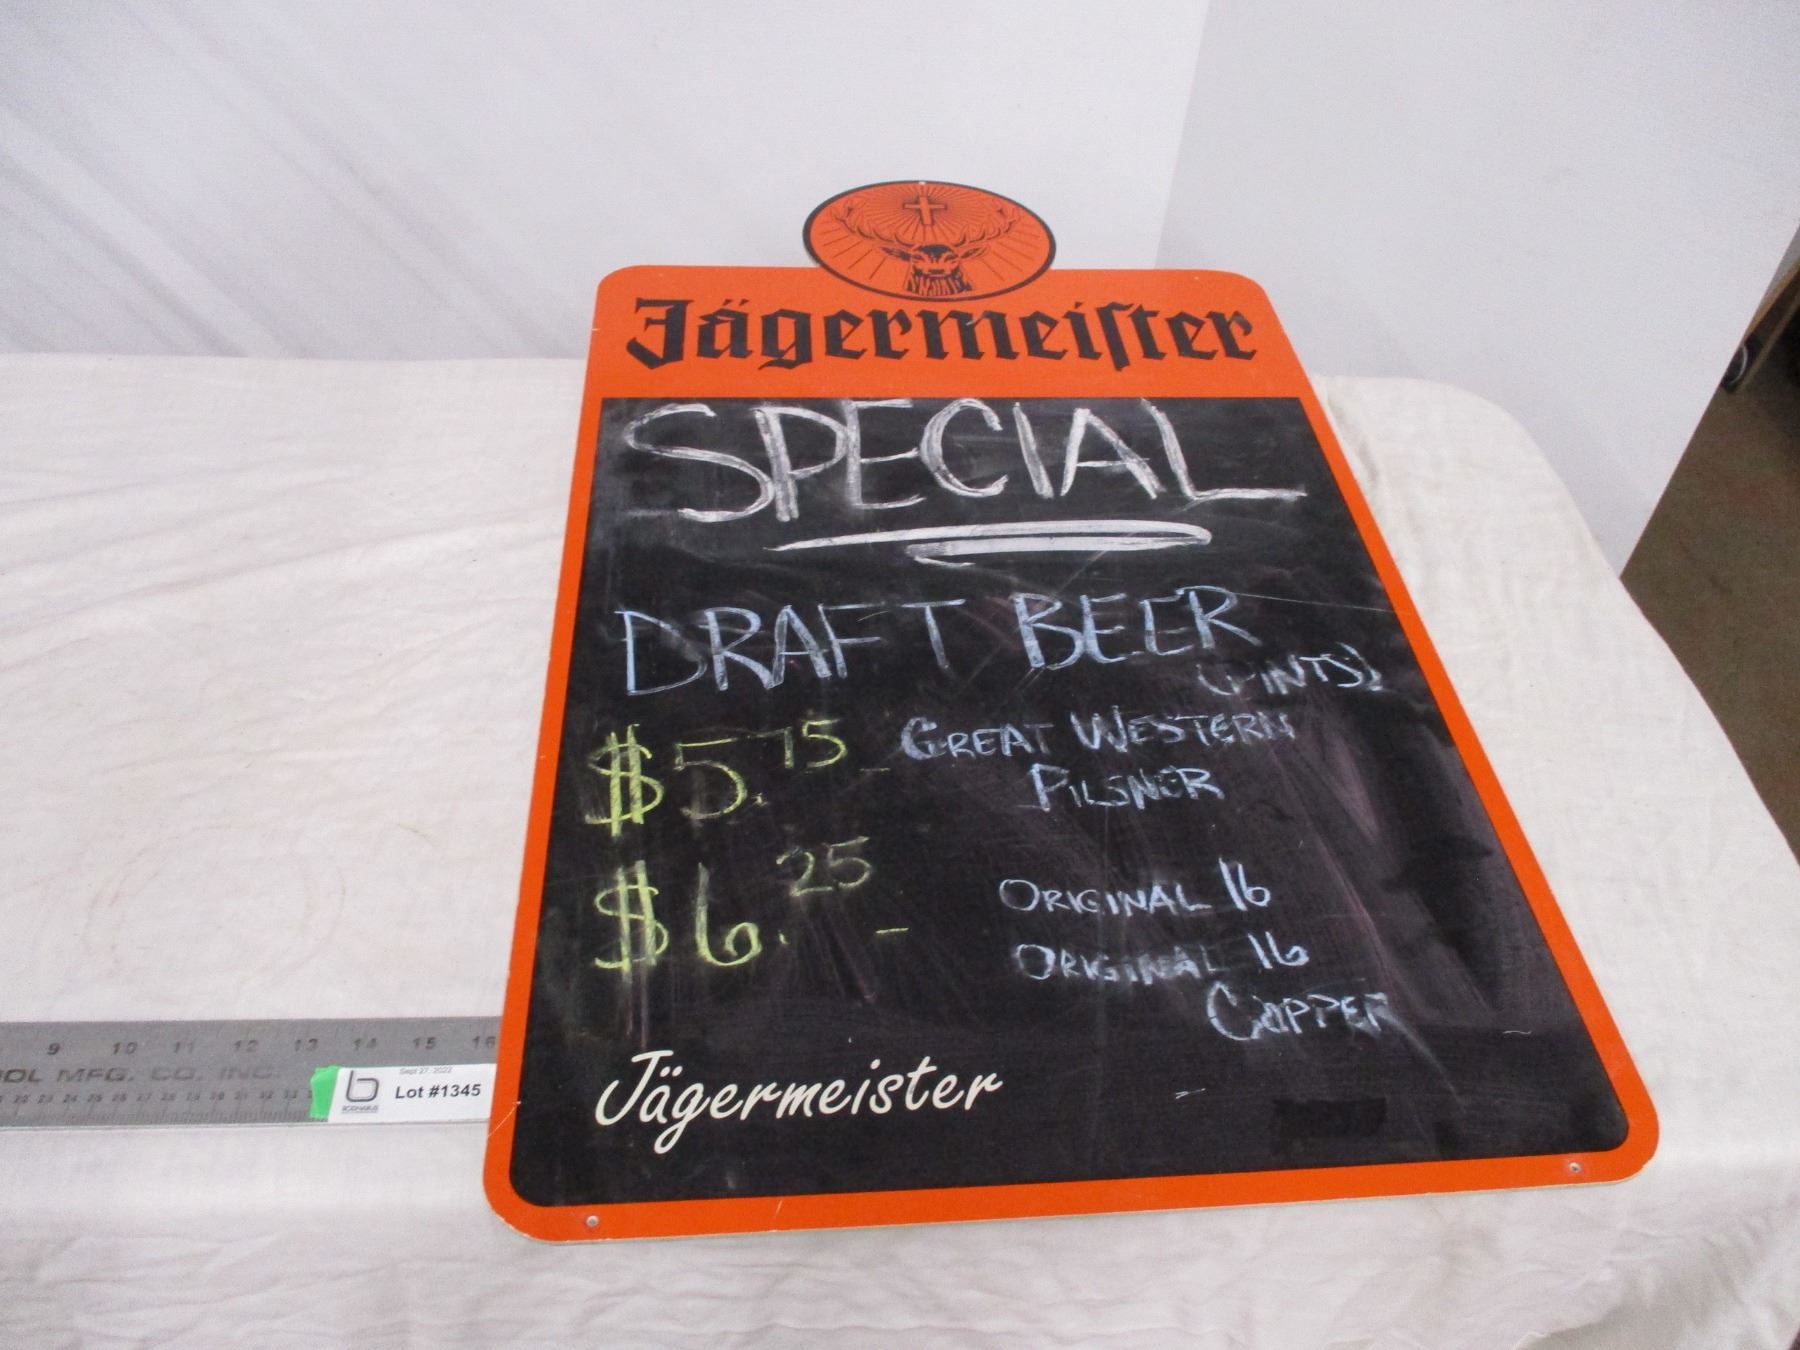 Jägermeiſter
SPECIAL
DRAFT BEER
(PINTS)
$5.75 - GREAT WESTERN
PILSNER
$6.25 - ORIGINAL 16
ORIGINAL 16
COPPER
Jägermeister
9 10 11 12 13 14 15 16
OL MFG. CO. INC.
Sept 27, 2022
Lot #1345